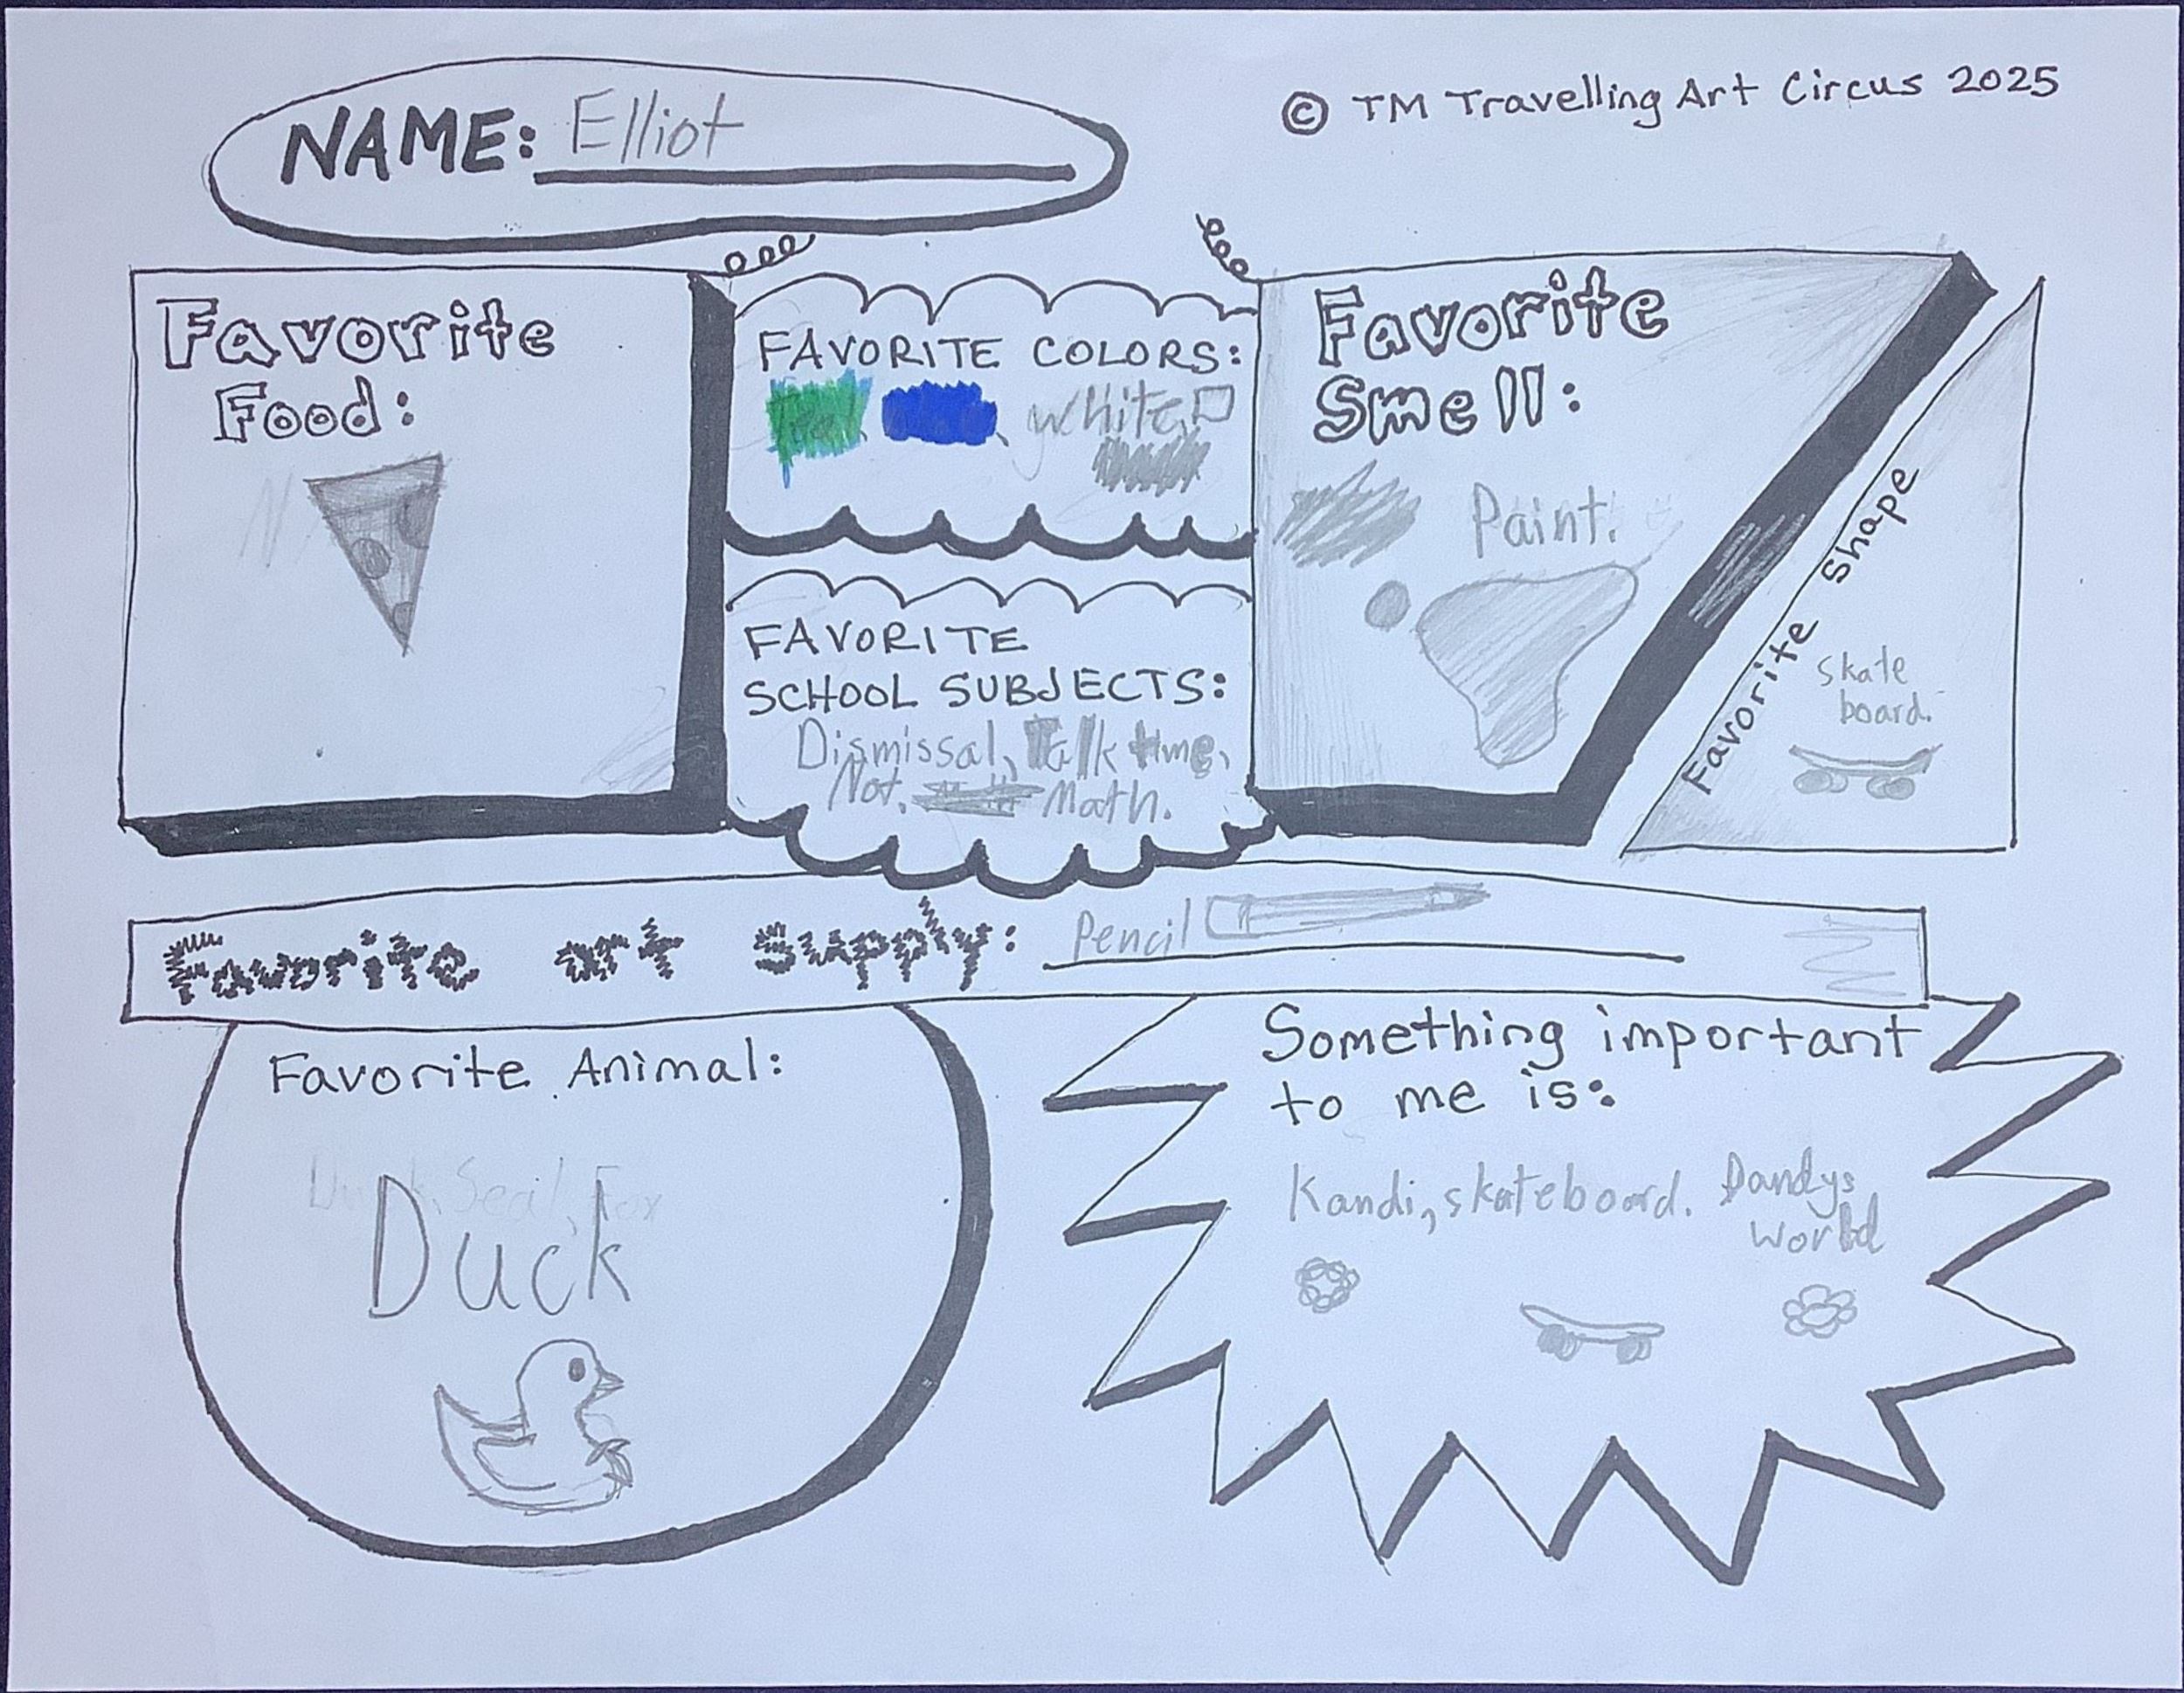 NAME: Elliot
© TM Travelling Art Circus 2025
Favorite
Food:
FAVORITE COLORS:
Teal, white,
FAVORITE
SCHOOL SUBJECTS:
Dismissal, Talk time,
Not. Math.
Favorite
Smell:
Paint.
Favorite Shape
skate
board.
Favorite art supply: Pencil
Favorite Animal:
Duck, Seal, Fox
Duck
Something important
to me is:
Kandi, skateboard. Dandys
world